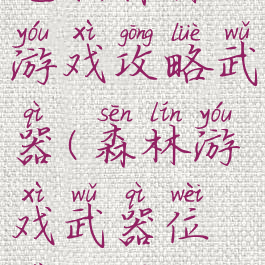 yóu xì gōng lüè wǔ
游戏攻略武
qì sēn lín yóu
器(森林游
xì wǔ qì wèi
戏武器位